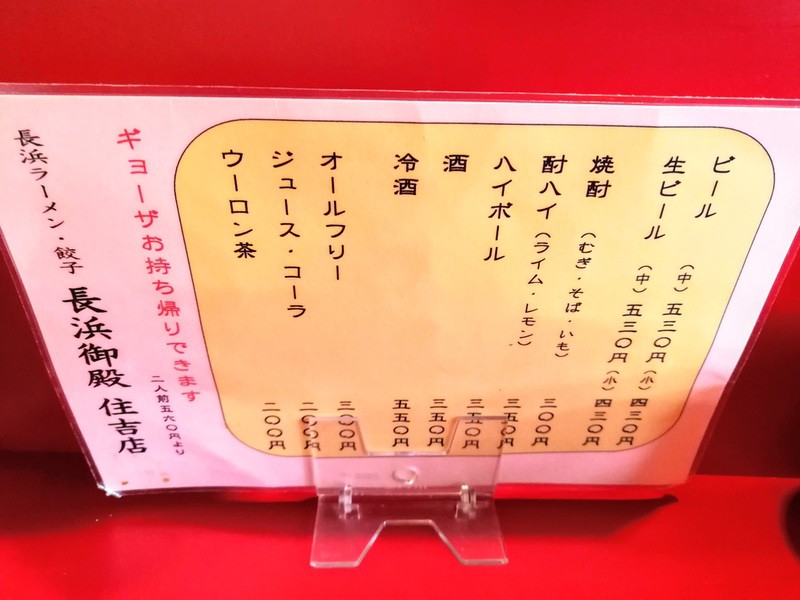 ビール （中）五三〇円（小）四三〇円
生ビール （中）五三〇円（小）四三〇円
焼酎（むぎ・そば・いも） 三〇〇円
酎ハイ（ライム・レモン） 三五〇円
ハイボール 三五〇円
酒 三五〇円
冷酒 五五〇円
オールフリー 三〇〇円
ジュース・コーラ 二〇〇円
ウーロン茶 二〇〇円
ギョーザお持ち帰りできます
二人前五六〇円より
長浜ラーメン・餃子 長浜御殿 住吉店